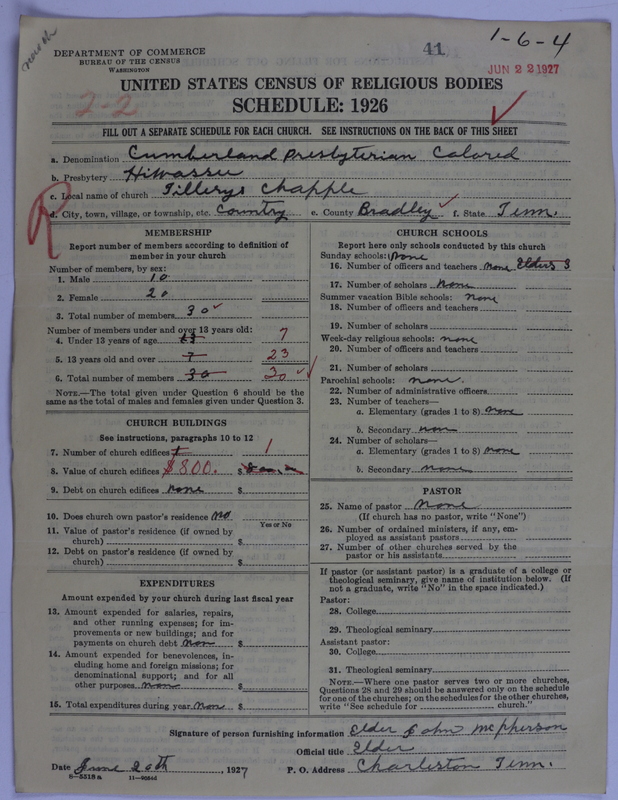 41
1-6-4
JUN 22 1927
DEPARTMENT OF COMMERCE
BUREAU OF THE CENSUS
WASHINGTON
UNITED STATES CENSUS OF RELIGIOUS BODIES
2-2
SCHEDULE: 1926
FILL OUT A SEPARATE SCHEDULE FOR EACH CHURCH. SEE INSTRUCTIONS ON THE BACK OF THIS SHEET
a. Denomination Cumberland Presbyterian Colored
b. Presbytery Hiwassee
c. Local name of church Tillerys Chapple
R
d. City, town, village, or township, etc. Country e. County Bradley f. State Tenn.
MEMBERSHIP
Report number of members according to definition of
member in your church
Number of members, by sex:
1. Male 10
2. Female 20
3. Total number of members 30
Number of members under and over 13 years old:
4. Under 13 years of age 13 7
5. 13 years old and over 7 23
6. Total number of members 30 30
NOTE.—The total given under Question 6 should be
same as the total of males and females given under Question 3.
CHURCH BUILDINGS
See instructions, paragraphs 10 to 12
7. Number of church edifices 1 1
8. Value of church edifices $800. $
9. Debt on church edifices none $
10. Does church own pastor's residence No
Yes or No
11. Value of pastor's residence (if owned by
church) $
12. Debt on pastor's residence (if owned by
church) $
EXPENDITURES
Amount expended by your church during last fiscal year
13. Amount expended for salaries, repairs,
and other running expenses; for im-
provements or new buildings; and for
payments on church debt non $
14. Amount expended for benevolences, in-
cluding home and foreign missions; for
denominational support; and for all
other purposes non $
15. Total expenditures during year non $
CHURCH SCHOOLS
Report here only schools conducted by this church
Sunday schools: none
16. Number of officers and teachers none Elders 3
17. Number of scholars None
Summer vacation Bible schools: none
18. Number of officers and teachers
19. Number of scholars
Week-day religious schools: none
20. Number of officers and teachers
21. Number of scholars
Parochial schools: none.
22. Number of administrative officers
23. Number of teachers—
a. Elementary (grades 1 to 8) none
b. Secondary non
24. Number of scholars—
a. Elementary (grades 1 to 8) none
b. Secondary none
PASTOR
25. Name of pastor none
(If church has no pastor, write "None")
26. Number of ordained ministers, if any, em-
ployed as assistant pastors
27. Number of other churches served by the
pastor or his assistants
If pastor (or assistant pastor) is a graduate of a college or
theological seminary, give name of institution below. (If
not a graduate, write "No" in the space indicated.)
Pastor:
28. College
29. Theological seminary
Assistant pastor:
30. College
31. Theological seminary
NOTE.—Where one pastor serves two or more churches,
Questions 28 and 29 should be answered only on the schedule
for one of the churches; on the schedules for the other churches,
write "See schedule for church."
Signature of person furnishing information Elder John McPherson
Official title Elder
Date June 20th, 1927 P. O. Address Charleston Tenn.
6-5318a 11-9064d